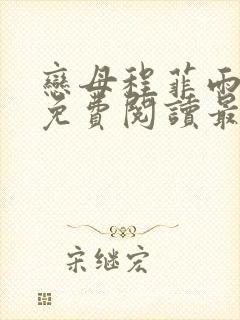 戀母程菲雨
免費閱讀最
宋继宏